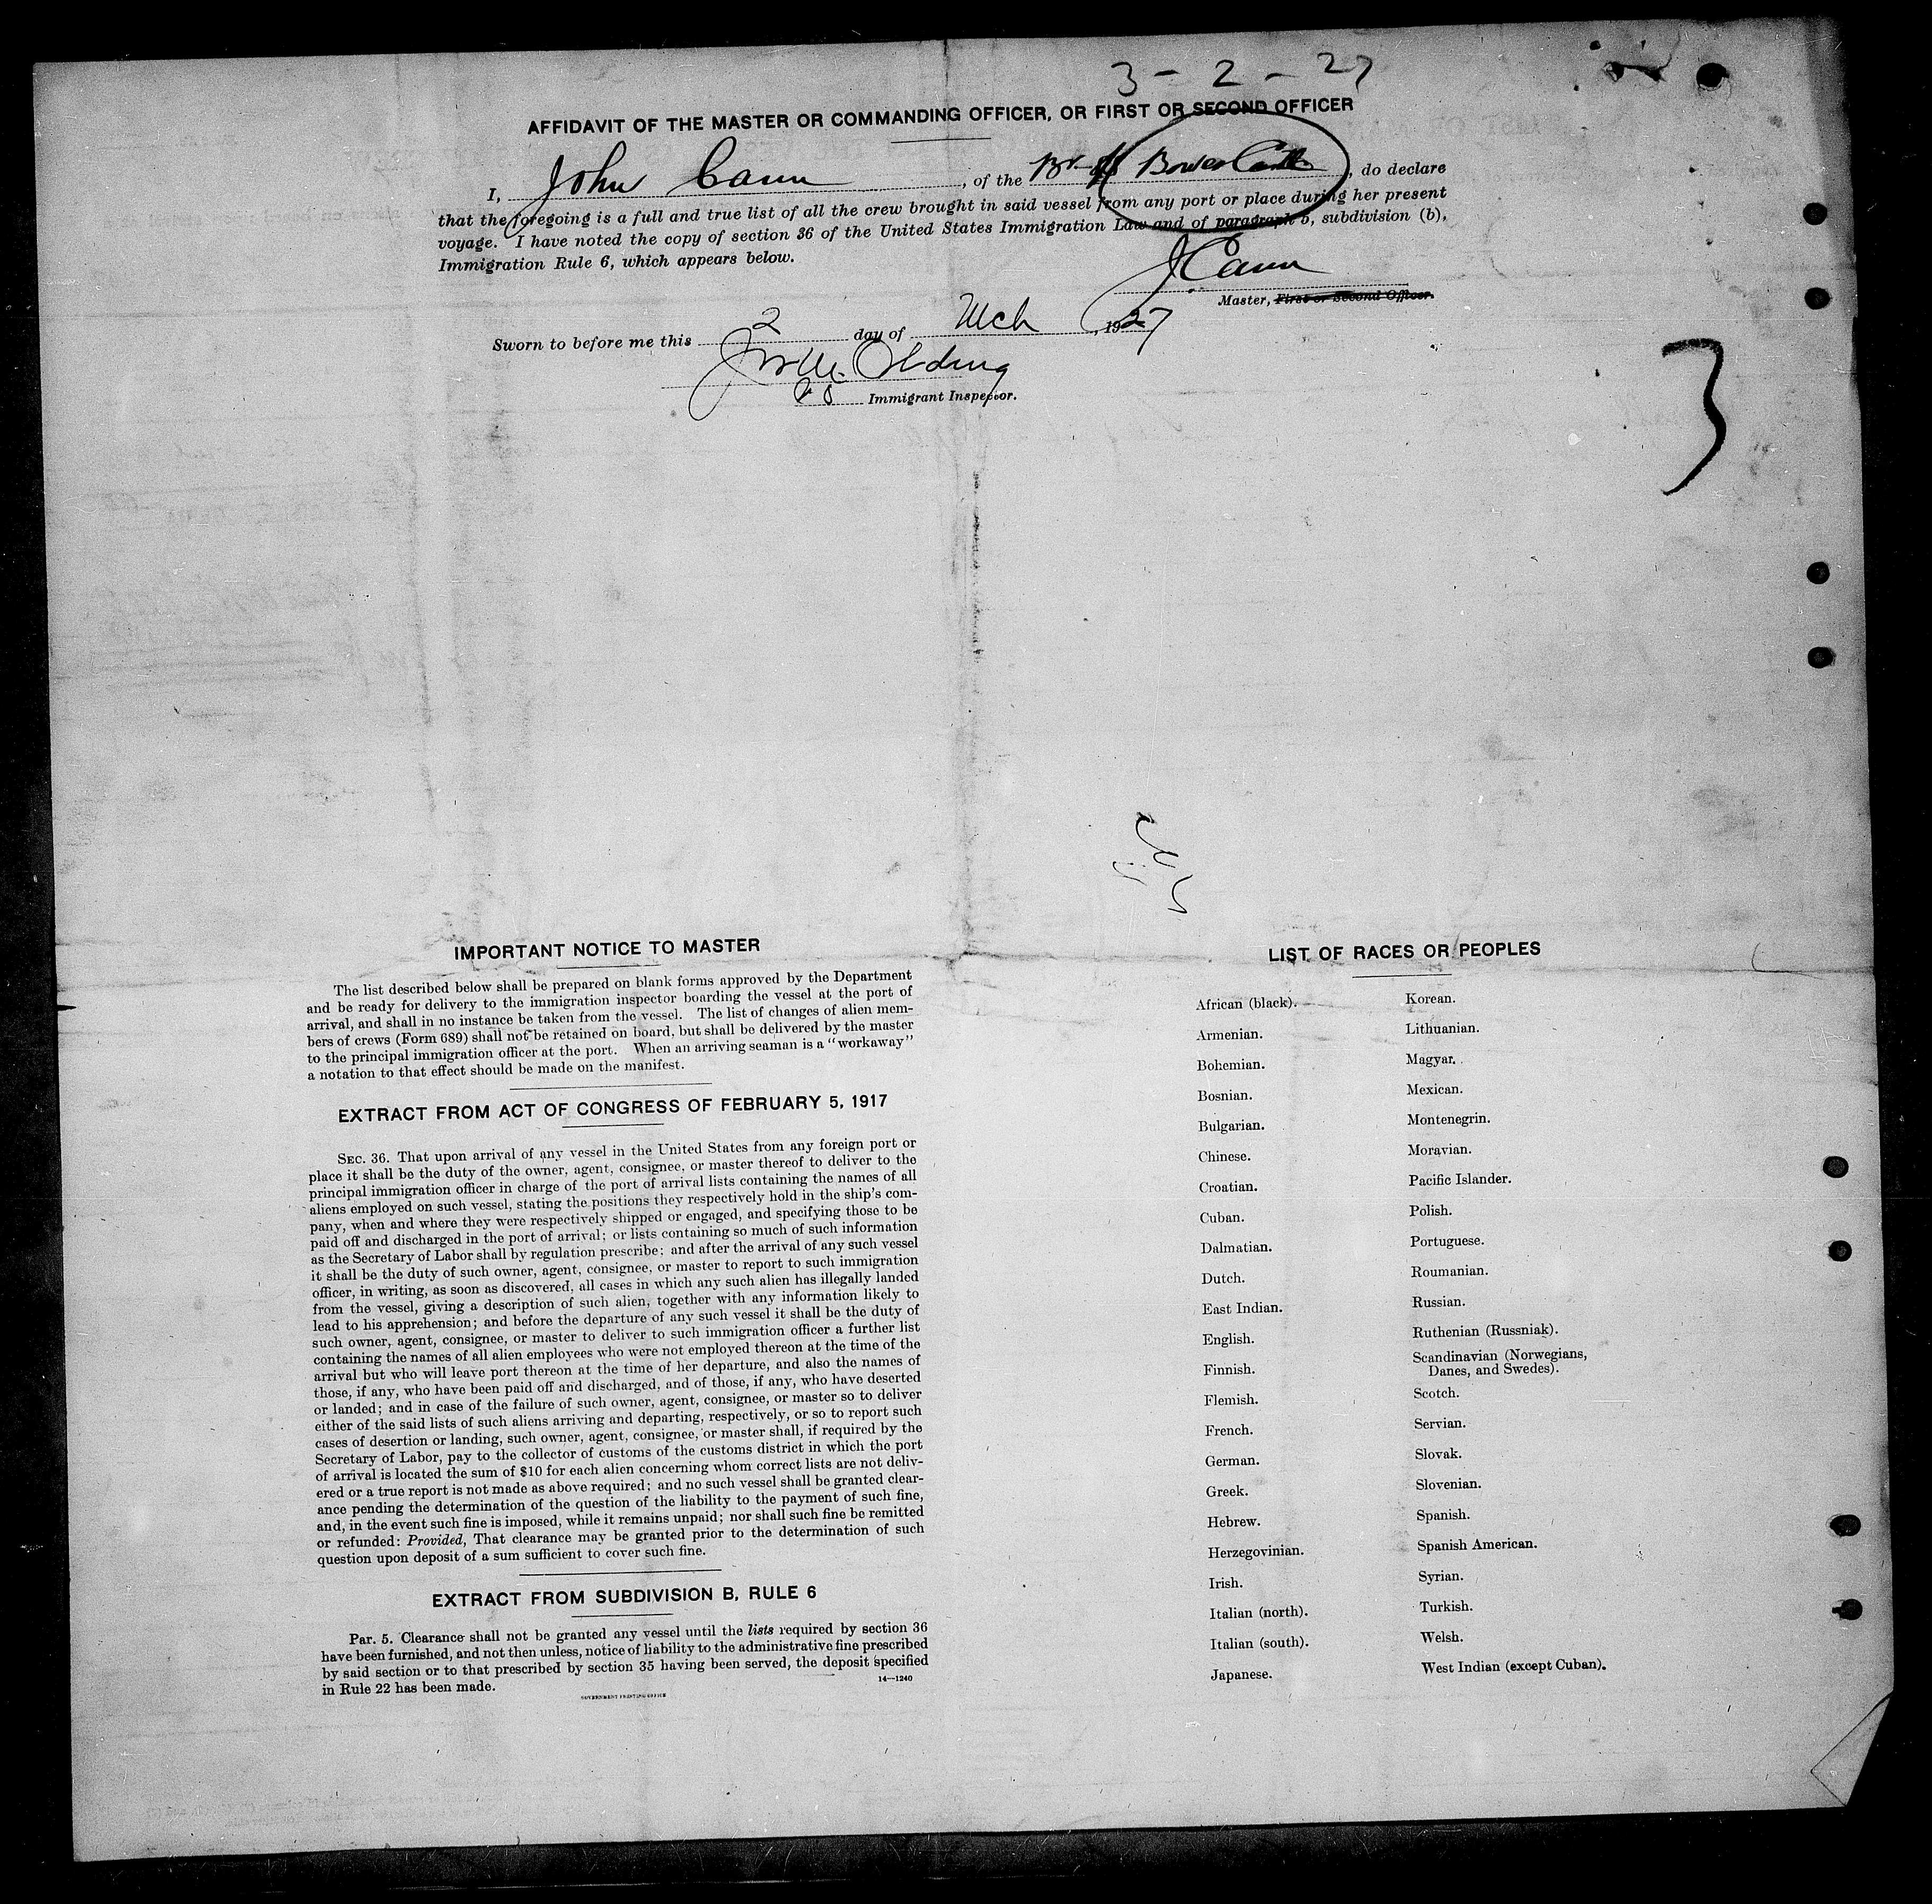 3 - 2 - 27
AFFIDAVIT OF THE MASTER OR COMMANDING OFFICER, OR FIRST OR SECOND OFFICER
I, John Cann, of the Br. Bowes Castle, do declare
that the foregoing is a full and true list of all the crew brought in said vessel from any port or place during her present
voyage. I have noted the copy of section 36 of the United States Immigration Law and of paragraph 5, subdivision (b),
Immigration Rule 6, which appears below.
J Cann
Master, First or Second Officer.
Sworn to before me this 2 day of Mch, 1927
Olding
Immigrant Inspector.
3
IMPORTANT NOTICE TO MASTER
The list described below shall be prepared on blank forms approved by the Department
and be ready for delivery to the immigration inspector boarding the vessel at the port of
arrival, and shall in no instance be taken from the vessel. The list of changes of alien mem-
bers of crews (Form 689) shall not be retained on board, but shall be delivered by the master
to the principal immigration officer at the port. When an arriving seaman is a "workaway"
a notation to that effect should be made on the manifest.
EXTRACT FROM ACT OF CONGRESS OF FEBRUARY 5, 1917
SEC. 36. That upon arrival of any vessel in the United States from any foreign port or
place it shall be the duty of the owner, agent, consignee, or master thereof to deliver to the
principal immigration officer in charge of the port of arrival lists containing the names of all
aliens employed on such vessel, stating the positions they respectively hold in the ship's com-
pany, when and where they were respectively shipped or engaged, and specifying those to be
paid off and discharged in the port of arrival; or lists containing so much of such information
as the Secretary of Labor shall by regulation prescribe; and after the arrival of any such vessel
it shall be the duty of such owner, agent, consignee, or master to report to such immigration
officer, in writing, as soon as discovered, all cases in which any such alien has illegally landed
from the vessel, giving a description of such alien, together with any information likely to
lead to his apprehension; and before the departure of any such vessel it shall be the duty of
such owner, agent, consignee, or master to deliver to such immigration officer a further list
containing the names of all alien employees who were not employed thereon at the time of the
arrival but who will leave port thereon at the time of her departure, and also the names of
those, if any, who have been paid off and discharged, and of those, if any, who have deserted
or landed; and in case of the failure of such owner, agent, consignee, or master so to deliver
either of the said lists of such aliens arriving and departing, respectively, or so to report such
cases of desertion or landing, such owner, agent, consignee, or master shall, if required by the
Secretary of Labor, pay to the collector of customs of the customs district in which the port
of arrival is located the sum of $10 for each alien concerning whom correct lists are not deliv-
ered or a true report is not made as above required; and no such vessel shall be granted clear-
ance pending the determination of the question of the liability to the payment of such fine,
and, in the event such fine is imposed, while it remains unpaid; nor shall such fine be remitted
or refunded: Provided, That clearance may be granted prior to the determination of such
question upon deposit of a sum sufficient to cover such fine.
EXTRACT FROM SUBDIVISION B, RULE 6
Par. 5. Clearance shall not be granted any vessel until the lists required by section 36
have been furnished, and not then unless, notice of liability to the administrative fine prescribed
by said section or to that prescribed by section 35 having been served, the deposit specified
in Rule 22 has been made.
14—1240
GOVERNMENT PRINTING OFFICE
LIST OF RACES OR PEOPLES
African (black).
Armenian.
Bohemian.
Bosnian.
Bulgarian.
Chinese.
Croatian.
Cuban.
Dalmatian.
Dutch.
East Indian.
English.
Finnish.
Flemish.
French.
German.
Greek.
Hebrew.
Herzegovinian.
Irish.
Italian (north).
Italian (south).
Japanese.
Korean.
Lithuanian.
Magyar.
Mexican.
Montenegrin.
Moravian.
Pacific Islander.
Polish.
Portuguese.
Roumanian.
Russian.
Ruthenian (Russniak).
Scandinavian (Norwegians,
Danes, and Swedes).
Scotch.
Servian.
Slovak.
Slovenian.
Spanish.
Spanish American.
Syrian.
Turkish.
Welsh.
West Indian (except Cuban).